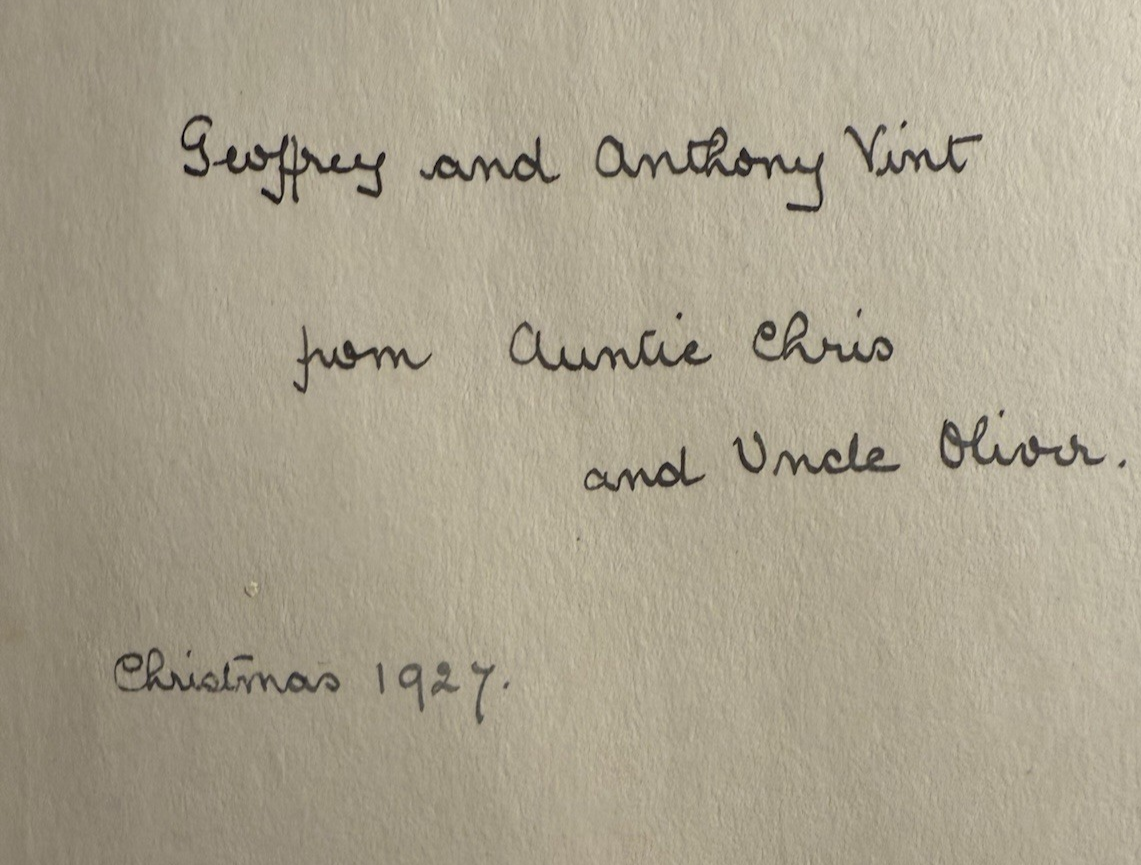 Geoffrey and Anthony Vint
from Auntie Chris
and Uncle Oliver.
Christmas 1927.